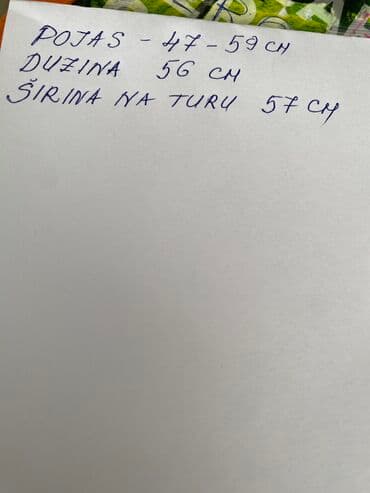 POJAS - 47 - 59 CM
DUZINA 56 CM
ŠIRINA NA TURU 57 CM